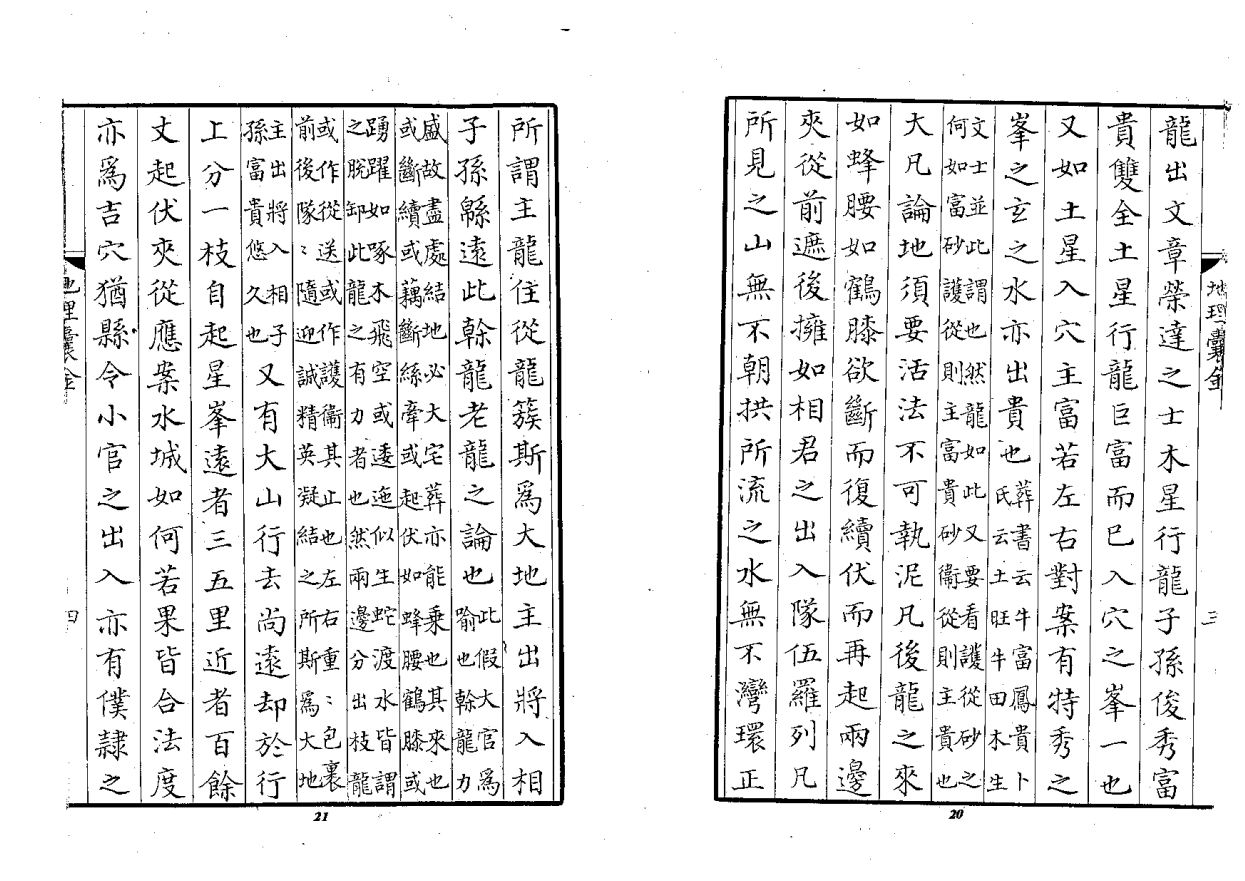 地理囊金
三
龍出文章榮達之士木星行龍子孫俊秀富
貴雙全土星行龍巨富而已入穴之峯一也
又如土星入穴主富若左右對案有特秀之
峯之玄之水亦出貴也葬書云牛富鳳貴卜
氏云土旺牛田木生
文士並此謂也然龍如此又要看護從砂之
何如富砂護從則主富貴砂衞從則主貴也
大凡論地須要活法不可執泥凡後龍之來
如蜂腰如鶴膝欲斷而復續伏而再起兩邊
夾從前遮後擁如相君之出入隊伍羅列凡
所見之山無不朝拱所流之水無不灣環正
20
所謂主龍住從龍簇斯爲大地主出將入相
子孫緜遠此幹龍老龍之論也此假大官爲
喻也幹龍力
盛故盡處結地必大宅葬亦能乘也其來也
或斷續或藕斷絲牽或起伏如蜂腰鶴膝或
踴躍如啄木飛空或逶迤似生蛇渡水皆謂
之脫卸此龍之有力者也然兩邊分出枝龍
或作從送或作護衞其止也左右重〻包裹
前後隊〻隨迎誠精英凝結之所斯爲大地
主出將入相子
孫富貴悠久也又有大山行去尚遠却於行
上分一枝自起星峯遠者三五里近者百餘
丈起伏夾從應案水城如何若果皆合法度
亦爲吉穴猶縣令小官之出入亦有僕隷之
地理囊金
四
21